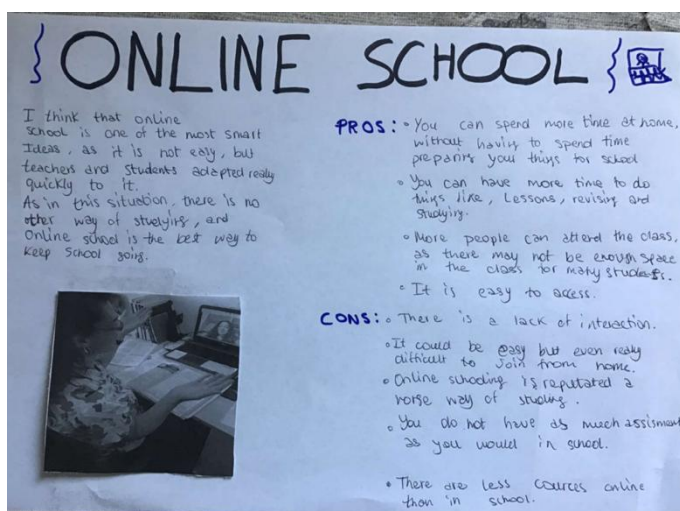 { ONLINE SCHOOL }
I think that online
school is one of the most smart
Ideas, as it is not easy, but
teachers and students adapted really
quickly to it.
As in this situation, there is no
other way of studying, and
Online school is the best way to
keep school going.
PROS: • You can spend more time at home,
without having to spend time
preparing your things for school
• You can have more time to do
things like, Lessons, revising and
studying.
• More people can attend the class,
as there may not be enough space
in the class for many students.
• It is easy to access.
CONS: • There is a lack of interaction.
• It could be easy but even really
difficult to join from home.
• Online schooling is reputated a
worse way of studing.
• You do not have as much assisment
as you would in school.
• There are less cources online
than in school.